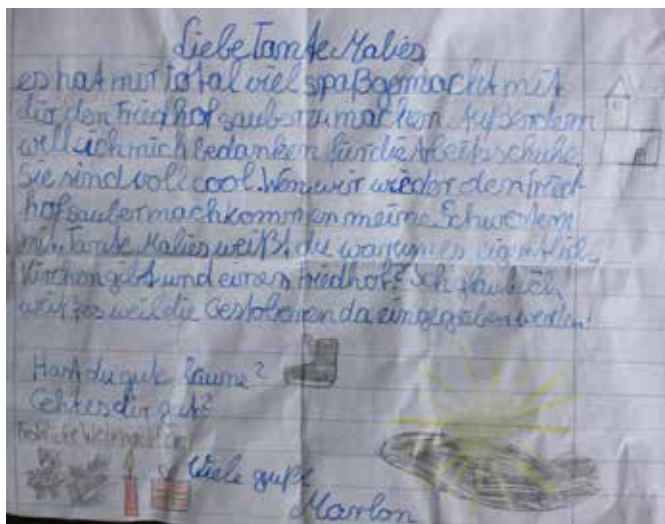 Liebe Tante Malies
es hat mir total viel spaß gemacht mit
dir den Friedhof sauber zu machen. Außerdem
will ich mich bedanken für die Arbeitsschuhe
Sie sind voll cool. Wen wir wieder den fried
hof sauber mach kommen meine Schwestern
mit. Tante Malies weißt du warum es eigentlich
Kirchen gibt und einen Friedhof? Ich glaub ich
weiß es weil die Gestobenen da eingegraben werden!
Hast du gute laune?
Geht es dir gut?
Fröhliche Weihnachten
Viele grüße
Marlon